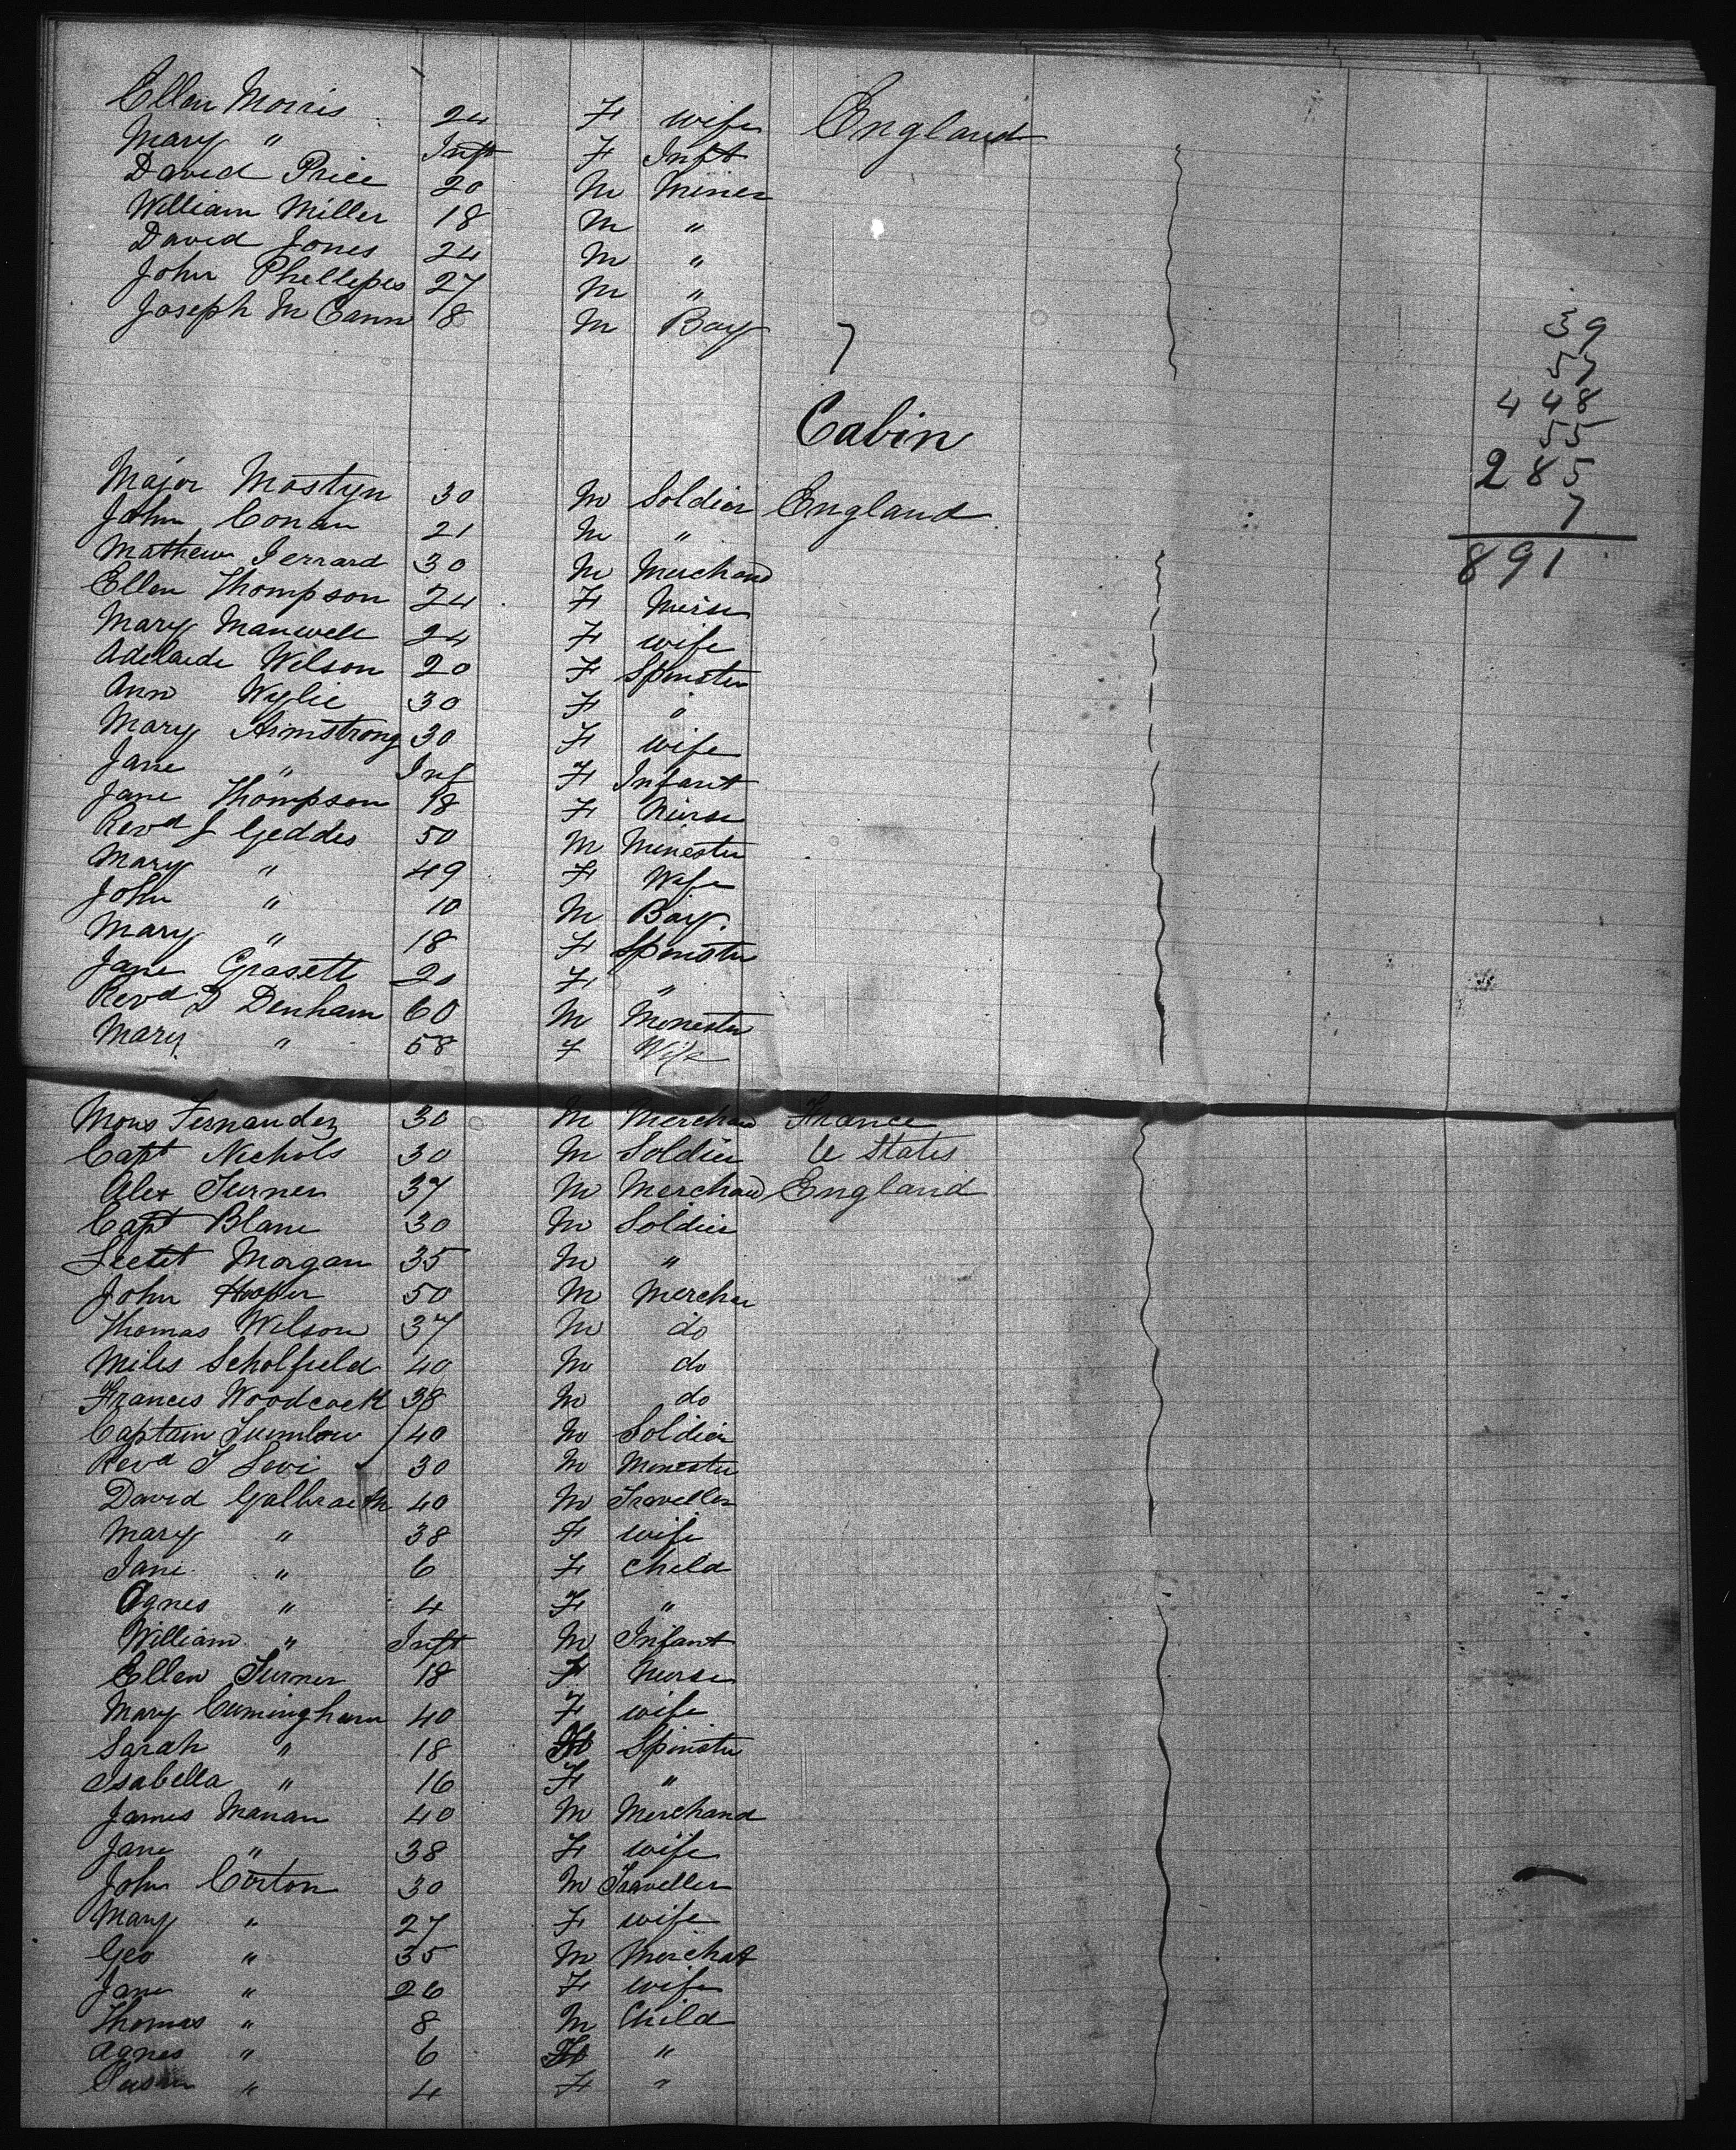 Ellen Morris 24 F wife England
Mary " Inft F Inft
David Price 20 M Miner
William Miller 18 M "
David Jones 24 M "
John Phellepes 27 M "
Joseph McCann 8 M Boy
7
39
57
448
55
285
7
891
Cabin
Major Mostyn 30 M Soldier England
John Conan 21 M "
Mathew Jerrard 30 M Merchand
Ellen Thompson 24 F Nurse
Mary Manwell 24 F wife
Adelaide Wilson 20 F Spinster
Ann Wylie 30 F "
Mary Armstrong 30 F wife
Jane " Inf F Infant
Jane Thompson 18 F Nurse
Revd J Geddes 50 M Minester
Mary " 49 F Wife
John " 10 M Boy
Mary " 18 F Spinster
Jane Grasett 20 F "
Revd D Denham 60 M Minester
Mary " 58 F Wife
Mons Fernandez 30 M Merchand France
Capt Nichols 30 M Soldier U States
Alex Turner 37 M Merchand England
Capt Blane 30 M Soldier
Morgan 35 M "
John Hooper 50 M Merchan
Thomas Wilson 37 M do
Miles Scholfield 40 M do
Francis Woodcock 38 M do
Captain 40 M Soldier
Revd J Levi 30 M Minester
David Galbraeth 40 M Traveller
Mary " 38 F wife
Jane " 6 F Child
Agnes " 4 F "
William " Inft M Infant
Ellen Turner 18 F Nurse
Mary Cuningham 40 F wife
Sarah " 18 F Spinster
Isabella " 16 F "
James Manan 40 M Merchand
Jane " 38 F wife
John Corton 30 M Traveller
Mary " 27 F wife
Geo " 35 M Merchat
Jane " 26 F wife
Thomas " 8 M Child
Agnes " 6 F "
Susan " 4 F "